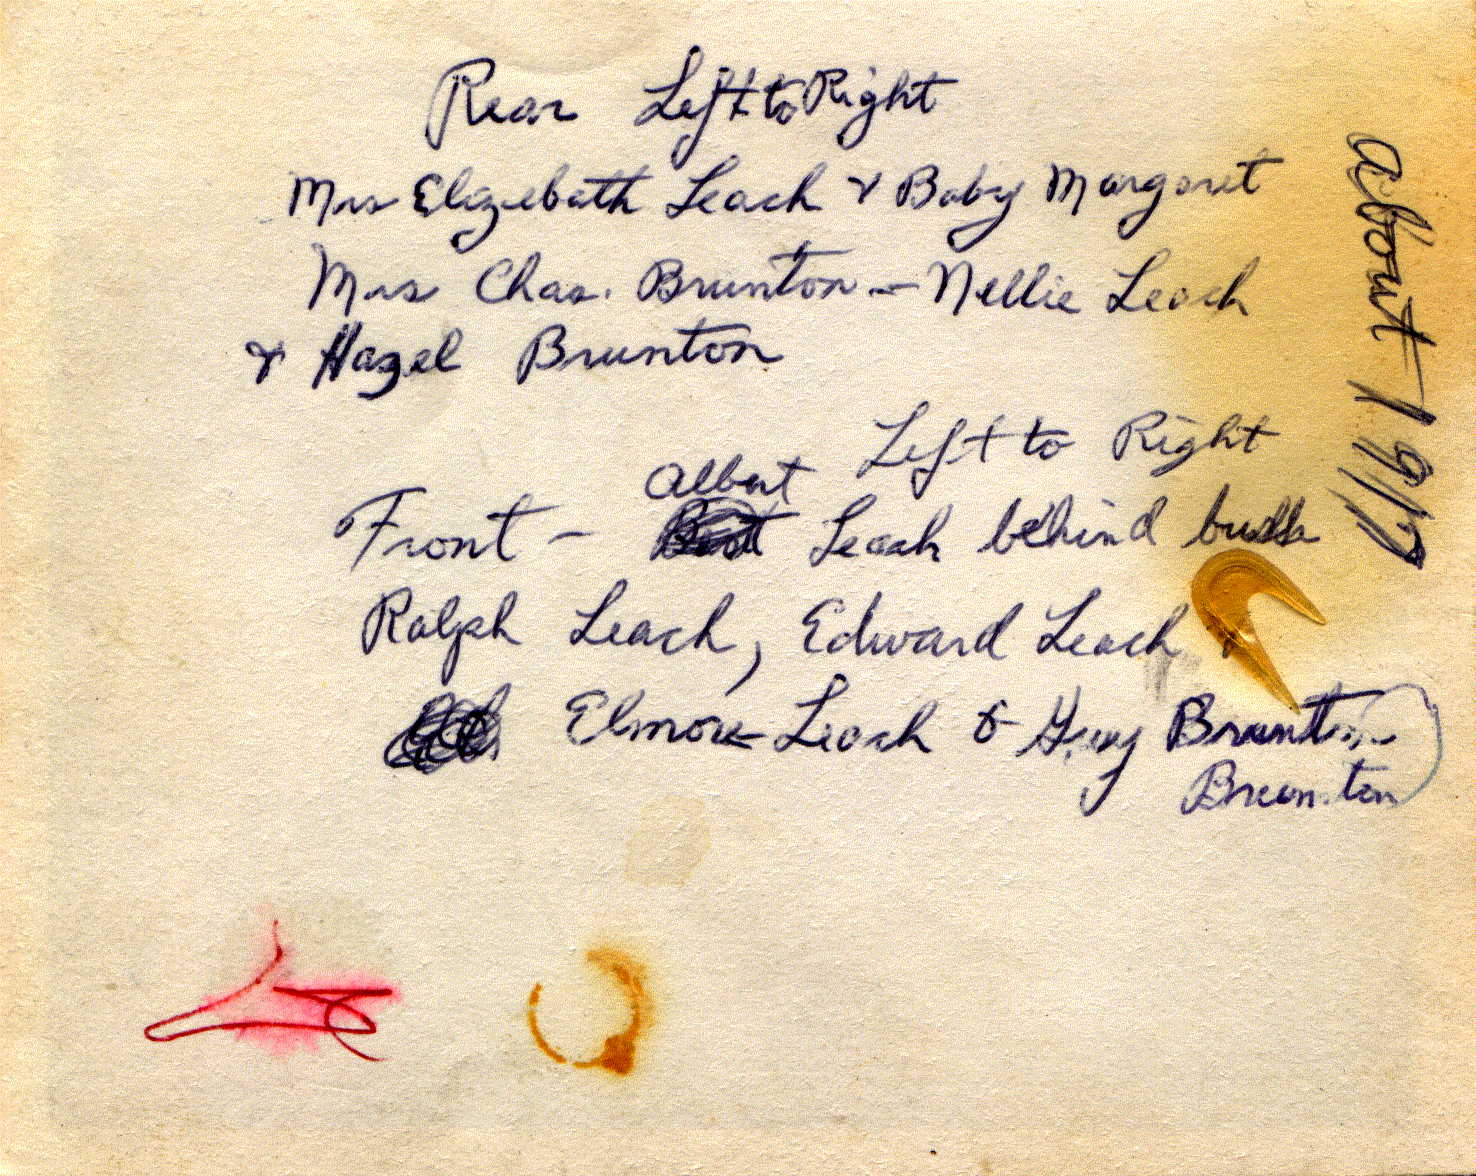 Rear Left to Right
Mrs Elizebath Leach & Baby Margaret
Mrs Chas. Brunton - Nellie Leach
& Hazel Brunton
Left to Right
Albert
Front - Leach behind
Ralph Leach, Edward Leach
Elmore Leach & Guy Brunton
Brunton
about 1917